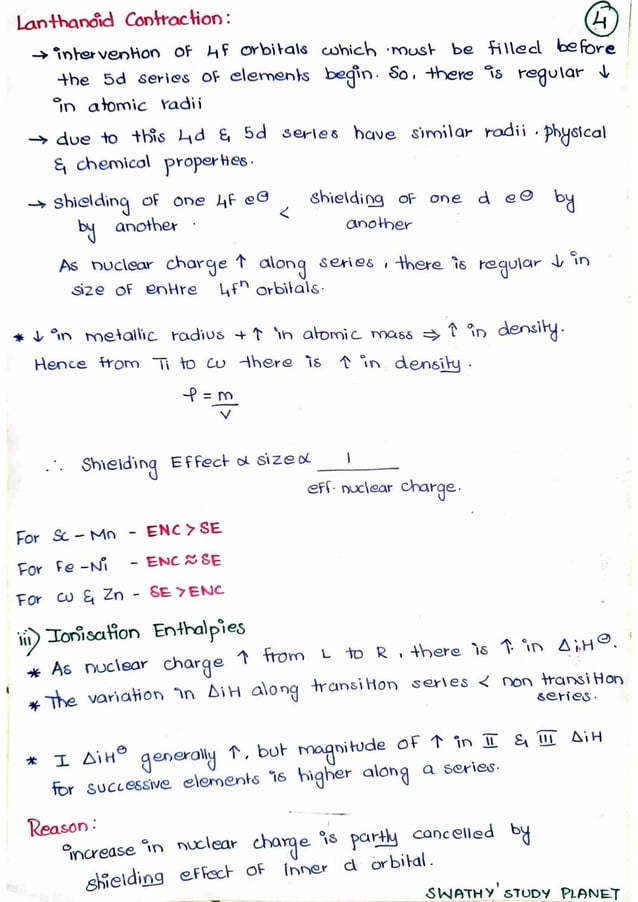 Lanthanoid Contraction:
4
→ intervention of 4f orbitals which must be filled before
the 5d series of elements begin. So, there is regular ↓
in atomic radii
→ due to this 4d & 5d series have similar radii, physical
& chemical properties.
→ shielding of one 4f e⊖ < shielding of one d e⊖ by
by another. another
As nuclear charge ↑ along series, there is regular ↓ in
size of entire 4fⁿ orbitals.
* ↓ in metallic radius + ↑ in atomic mass ⇒ ↑ in density.
Hence from Ti to Cu there is ↑ in density.
ρ = m
V
∴ Shielding Effect α size α 1
eff. nuclear charge.
For Sc - Mn - ENC > SE
For Fe - Ni - ENC ≈ SE
For Cu & Zn - SE > ENC
iii) Ionisation Enthalpies
* As nuclear charge ↑ from L to R, there is ↑ in ΔiH⊖.
* The variation in ΔiH along transition series < non transition
series.
* I ΔiH⊖ generally ↑, but magnitude of ↑ in II & III ΔiH
for successive elements is higher along a series.
Reason:
increase in nuclear charge is partly cancelled by
shielding effect of inner d orbital.
SWATHY'STUDY PLANET